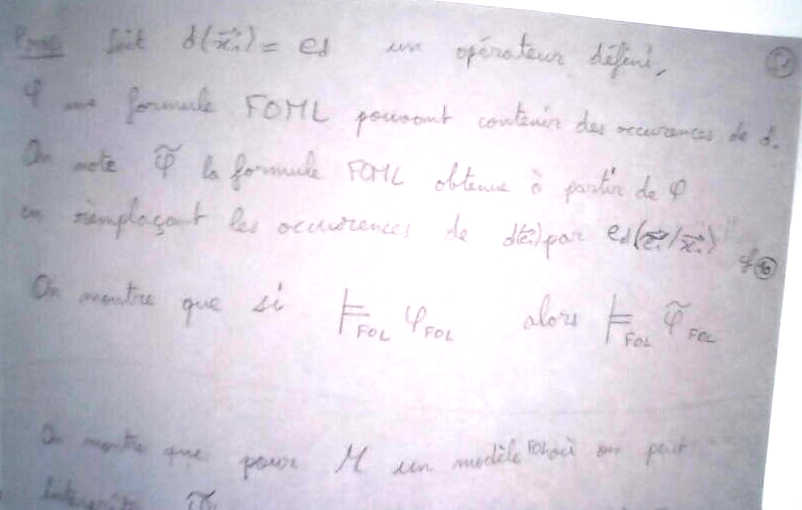 Soit d(x⃗ᵢ) = e_d un opérateur défini,
φ une formule FOML pouvant contenir des occurences de d.
On note φ̃ la formule FOML obtenue à partir de φ
en remplaçant les occurences de d(e⃗ᵢ) par e_d(e⃗ᵢ/x⃗ᵢ)
On montre que si ⊨_FOL φ_FOL alors ⊨_FOL φ̃_FOL
On montre que pour M un modèle où on peut